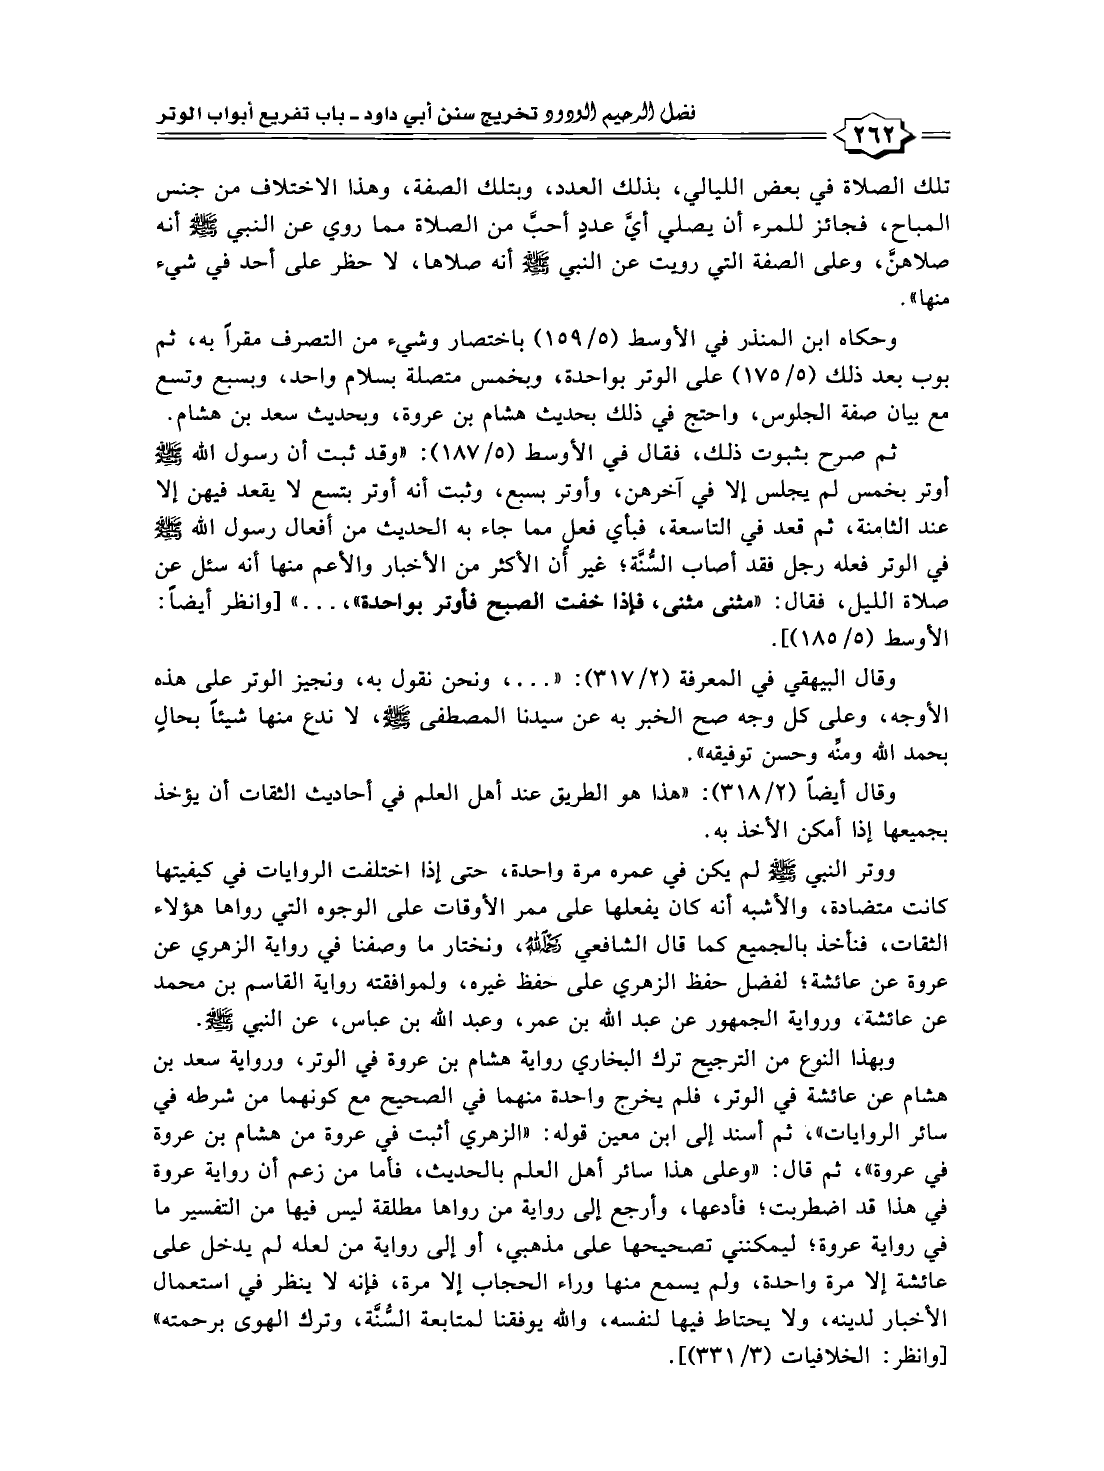 فضل الرحيم الودود تخريج سنن أبي داود - باب تفريع أبواب الوتر
٢٦٢
تلك الصلاة في بعض الليالي، بذلك العدد، وبتلك الصفة، وهذا الاختلاف من جنس
المباح، فجائز للمرء أن يصلي أيَّ عددٍ أحبَّ من الصلاة مما روي عن النبي ﷺ أنه
صلاهنَّ، وعلى الصفة التي رويت عن النبي ﷺ أنه صلاها، لا حظر على أحد في شيء
منها».
وحكاه ابن المنذر في الأوسط (١٥٩/٥) باختصار وشيء من التصرف مقراً به، ثم
بوب بعد ذلك (١٧٥/٥) على الوتر بواحدة، وبخمس متصلة بسلام واحد، وبسبع وتسع
مع بيان صفة الجلوس، واحتج في ذلك بحديث هشام بن عروة، وبحديث سعد بن هشام.
ثم صرح بثبوت ذلك، فقال في الأوسط (١٨٧/٥): «وقد ثبت أن رسول الله ﷺ
أوتر بخمس لم يجلس إلا في آخرهن، وأوتر بسبع، وثبت أنه أوتر بتسع لا يقعد فيهن إلا
عند الثامنة، ثم قعد في التاسعة، فبأي فعلٍ مما جاء به الحديث من أفعال رسول الله ﷺ
في الوتر فعله رجل فقد أصاب السُّنَّة؛ غير أن الأكثر من الأخبار والأعم منها أنه سئل عن
صلاة الليل، فقال: «مثنى مثنى، فإذا خفت الصبح فأوتر بواحدة»، ...» [وانظر أيضاً:
الأوسط (١٨٥/٥)].
وقال البيهقي في المعرفة (٣١٧/٢): «...، ونحن نقول به، ونجيز الوتر على هذه
الأوجه، وعلى كل وجه صح الخبر به عن سيدنا المصطفى ﷺ، لا ندع منها شيئاً بحالٍ
بحمد الله ومنِّه وحسن توفيقه».
وقال أيضاً (٣١٨/٢): «هذا هو الطريق عند أهل العلم في أحاديث الثقات أن يؤخذ
بجميعها إذا أمكن الأخذ به.
ووتر النبي ﷺ لم يكن في عمره مرة واحدة، حتى إذا اختلفت الروايات في كيفيتها
كانت متضادة، والأشبه أنه كان يفعلها على ممر الأوقات على الوجوه التي رواها هؤلاء
الثقات، فنأخذ بالجميع كما قال الشافعي رَحِمَهُ اللهُ، ونختار ما وصفنا في رواية الزهري عن
عروة عن عائشة؛ لفضل حفظ الزهري على حفظ غيره، ولموافقته رواية القاسم بن محمد
عن عائشة، ورواية الجمهور عن عبد الله بن عمر، وعبد الله بن عباس، عن النبي ﷺ.
وبهذا النوع من الترجيح ترك البخاري رواية هشام بن عروة في الوتر، ورواية سعد بن
هشام عن عائشة في الوتر، فلم يخرج واحدة منهما في الصحيح مع كونهما من شرطه في
سائر الروايات»، ثم أسند إلى ابن معين قوله: «الزهري أثبت في عروة من هشام بن عروة
في عروة»، ثم قال: «وعلى هذا سائر أهل العلم بالحديث، فأما من زعم أن رواية عروة
في هذا قد اضطربت؛ فأدعها، وأرجع إلى رواية من رواها مطلقة ليس فيها من التفسير ما
في رواية عروة؛ ليمكنني تصحيحها على مذهبي، أو إلى رواية من لعله لم يدخل على
عائشة إلا مرة واحدة، ولم يسمع منها وراء الحجاب إلا مرة، فإنه لا ينظر في استعمال
الأخبار لدينه، ولا يحتاط فيها لنفسه، والله يوفقنا لمتابعة السُّنَّة، وترك الهوى برحمته»
[وانظر: الخلافيات (٣٣١/٣)].